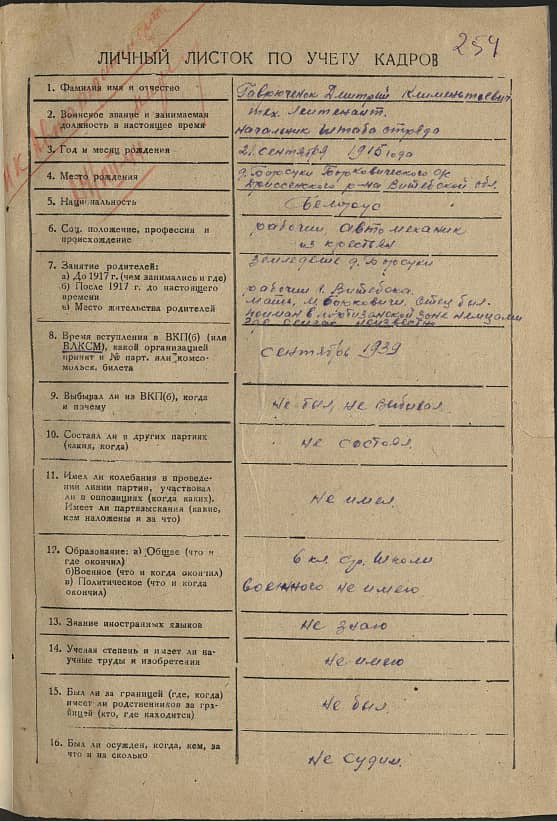 254
ЛИЧНЫЙ ЛИСТОК ПО УЧЕТУ КАДРОВ
1. Фамилия имя и отчество
Гавюченок Дмитрий Климентьевич
2. Воинское звание и занимаемая
должность в настоящее время
тех. лейтенант.
начальник штаба отряда
3. Год и месяц рождения
21 сентября 1915 года
4. Место рождения
д. Борсуки Борковического с/с
Дриссенского р-на Витебской обл.
5. Национальность
белорус
6. Соц. положение, профессия и
происхождение
рабочий, автомеханик
из крестьян
7. Занятие родителей:
а) До 1917 г. (чем занимались и где)
б) После 1917 г. до настоящего
времени
в) Место жительства родителей
земледелие д. Борсуки
рабочий г. Витебска.
мать, м. Борковичи. Отец был
пойман в партизанской зоне немцами
где сейчас неизвестно
8. Время вступления в ВКП(б) (или
ВЛКСМ), какой организацией
принят и № парт. или комсо-
мольск. билета
сентябрь 1939
9. Выбырал ли из ВКП(б), когда
и почему
не был, не выбывал
10. Состоял ли в других партиях
(каких, когда)
не состоял.
11. Имел ли колебания в проведе-
нии линии партии, участвовал
ли в оппозициях (когда каких).
Имеет ли партвзыскания (какие,
кем наложены и за что)
не имел.
12. Образование: а) Общее (что и
где окончил)
б)Военное (что и когда окончил)
в) Политическое (что и когда
окончил)
6 кл. ср. школы
военного не имею
13. Знание иностранных языков
не знаю
14. Ученая степень и имеет ли на-
учные труды и изобретения
не имею
15. Был ли за границей (где, когда)
имеет ли родственников за гра-
ницей (кто, где находится)
не был.
16. Был ли осужден, когда, кем, за
что и на сколько
не судим.